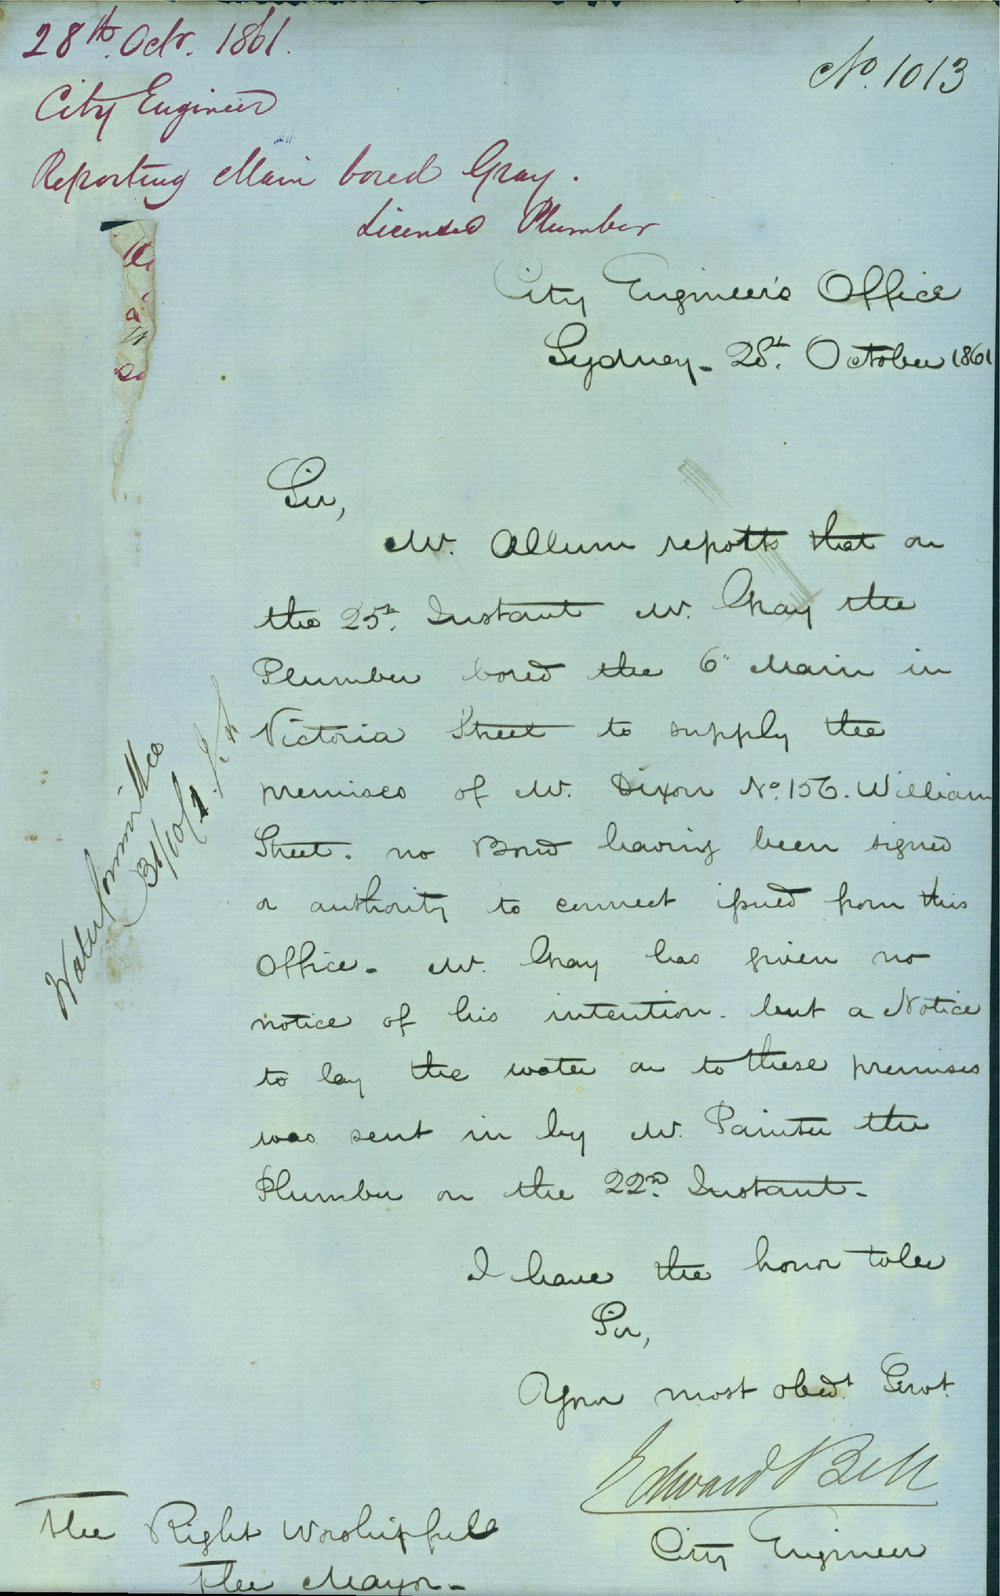 28th. Octr. 1861.
No. 1013
City Engineer
Reporting Main bored Gray.
Licensed Plumber
City Engineer's Office
Sydney - 28th. October 1861
Sir,
Mr. Allum reports that on
the 25th. Instant Mr. Gray the
Plumber bored the 6" Main in
Victoria Street to supply the
premises of Mr. Dixon No. 156. William
Street. no Bond having been signed
or authority to connect issued from this
Office - Mr. Gray has given no
notice of his intention. but a Notice
to lay the water on to these premises
was sent in by Mr. Painter the
Plumber on the 22nd. Instant -
I have the honor to be
Sir,
Your most obedt. Servt.
Edward Bell
City Engineer
The Right Worshipful
The Mayor -
Water Committee
31/10/1